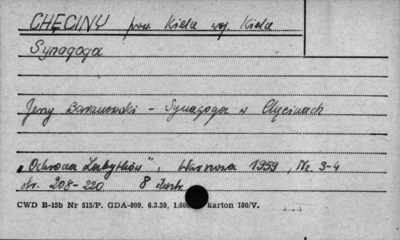 CHĘCINY pow. Kielce woj. Kielce
Synagoga
Jerzy Baranowski - Synagoga w Chęcinach
„Ochrona Zabytków", Warszawa 1959, Nr. 3-4
str. 208-220 8 ilustr.
CWD B-15b Nr 515/P. GDA-809. 6.3.59, 1.00 karton 180/V.